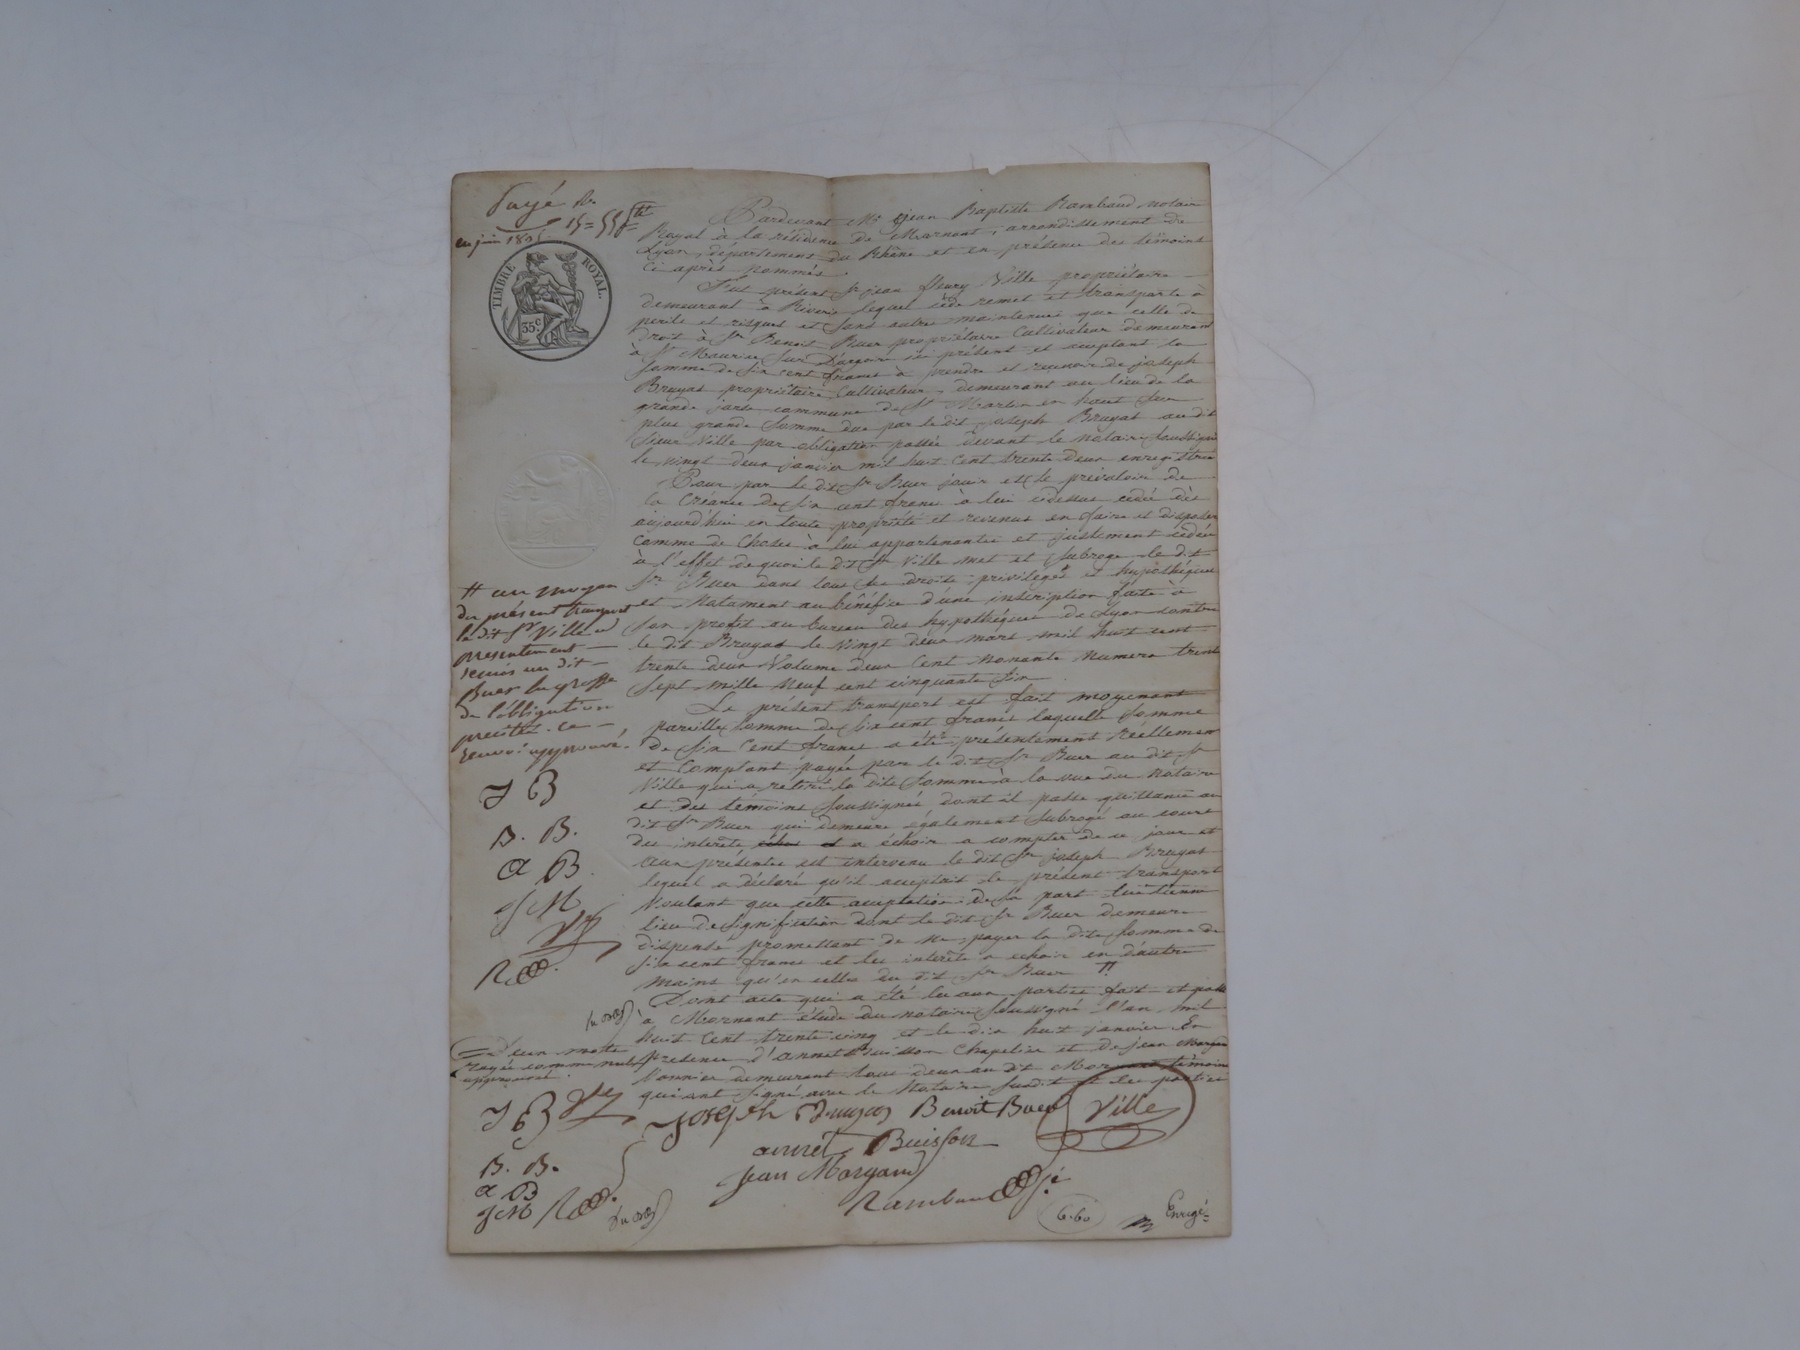 Payé
15=55
en juin 183
TIMBRE ROYAL.
35c
Pardevant Me jean Baptiste Rambaud, notaire
Royal à la résidence de Mornant, arrondissement de
Lyon, département du Rhône et en présence des témoins
ci après nommés.
Fut présent Sr jean fleury Ville propriétaire
demeurant à Riverie lequel cède remet et transporte à
perils et risques et sans autre maintenue que celle de
Droit à Sr Benoit Buer propriétaire Cultivateur demeurant
à St Maurice Sur Dargoire ici présent et acceptant la
somme de Six cent francs à prendre et recevoir de joseph
Bruyas propriétaire Cultivateur, demeurant au lieu de la
grande jarte commune de St Martin en haut Sur
plus grande Somme due par le dit joseph Bruyas audit
Sieur Ville par obligation passée devant le notaire Soussigné
le vingt deux janvier mil huit cent trente deux enregistrée
Pour par le dit Sr Buer jouir et se prévaloir de
la Créance de Six cent francs à lui cidessus cédée dès
aujourd'hui en toute propriété et revenus en faire et disposer
comme de choses à lui appartenantes et justement cédées
à l'effet de quoi le dit Sr Ville met et Subroge le dit
Sr Buer dans tous Ses droits, privilèges et hypothèques
et Notament au bénéfice d'une inscription faite à
Son profit au bureau des hypothèques de Lyon contre
le dit Bruyas le vingt deux mars mil huit cent
trente deux Volume deux Cent Nonante Numero trente
Sept mille Neuf cent cinquante Six.
Le présent transport est fait moyenant
pareille Somme de Six cent francs laquelle Somme
de Six Cent francs a été présentement Réellement
et Comptant payée par le dit Sr Buer au dit Sr
Ville qui a retiré la dite Somme à la vue du Notaire
et des témoins Soussignés dont il passe quittance au
dit Sr Buer qui demeure également Subrogé au cours
des intérêts échus et a échoir a compter de ce jour et
Aux présentes est intervenu le dit Sr joseph Bruyas
lequel a déclaré qu'il acceptait le présent transport
Voulant que cette acceptation de Sa part lui tienne
lieu de Signification dont le dit Sr Buer demeure
dispensé promettant de Ne payer la dite Somme de
Six cent francs et les intérêts a echoir en d'autre
mains qu'en celles du dit Sr Buer #
Dont acte qui a été lu aux parties fait et passé
à Mornant étude du notaire Soussigné l'an mil
huit Cent trente cinq et le dix huit janvier En
Présence d'annet Buisson Chapelier et de jean Morgand
demeurant tous deux au dit Mornant témoins
qui ont Signé avec le Notaire Susdit et les parties
# au moyen
du présent transport
le dit Sr Ville a
présentement
remis au dit
Buer la grosse
de l'obligation
précitée. Ce
renvoi approuvé.
J B
B. B.
a B.
JM
Ve
R
Deux mots
rayés comme nuls
approuvé.
J B Ve
B. B.
a B
JM R
Joseph Bruyas Benoit Buer Ville
annet Buisson
Jean Morgand
Rambaud
6.60
Enregé=